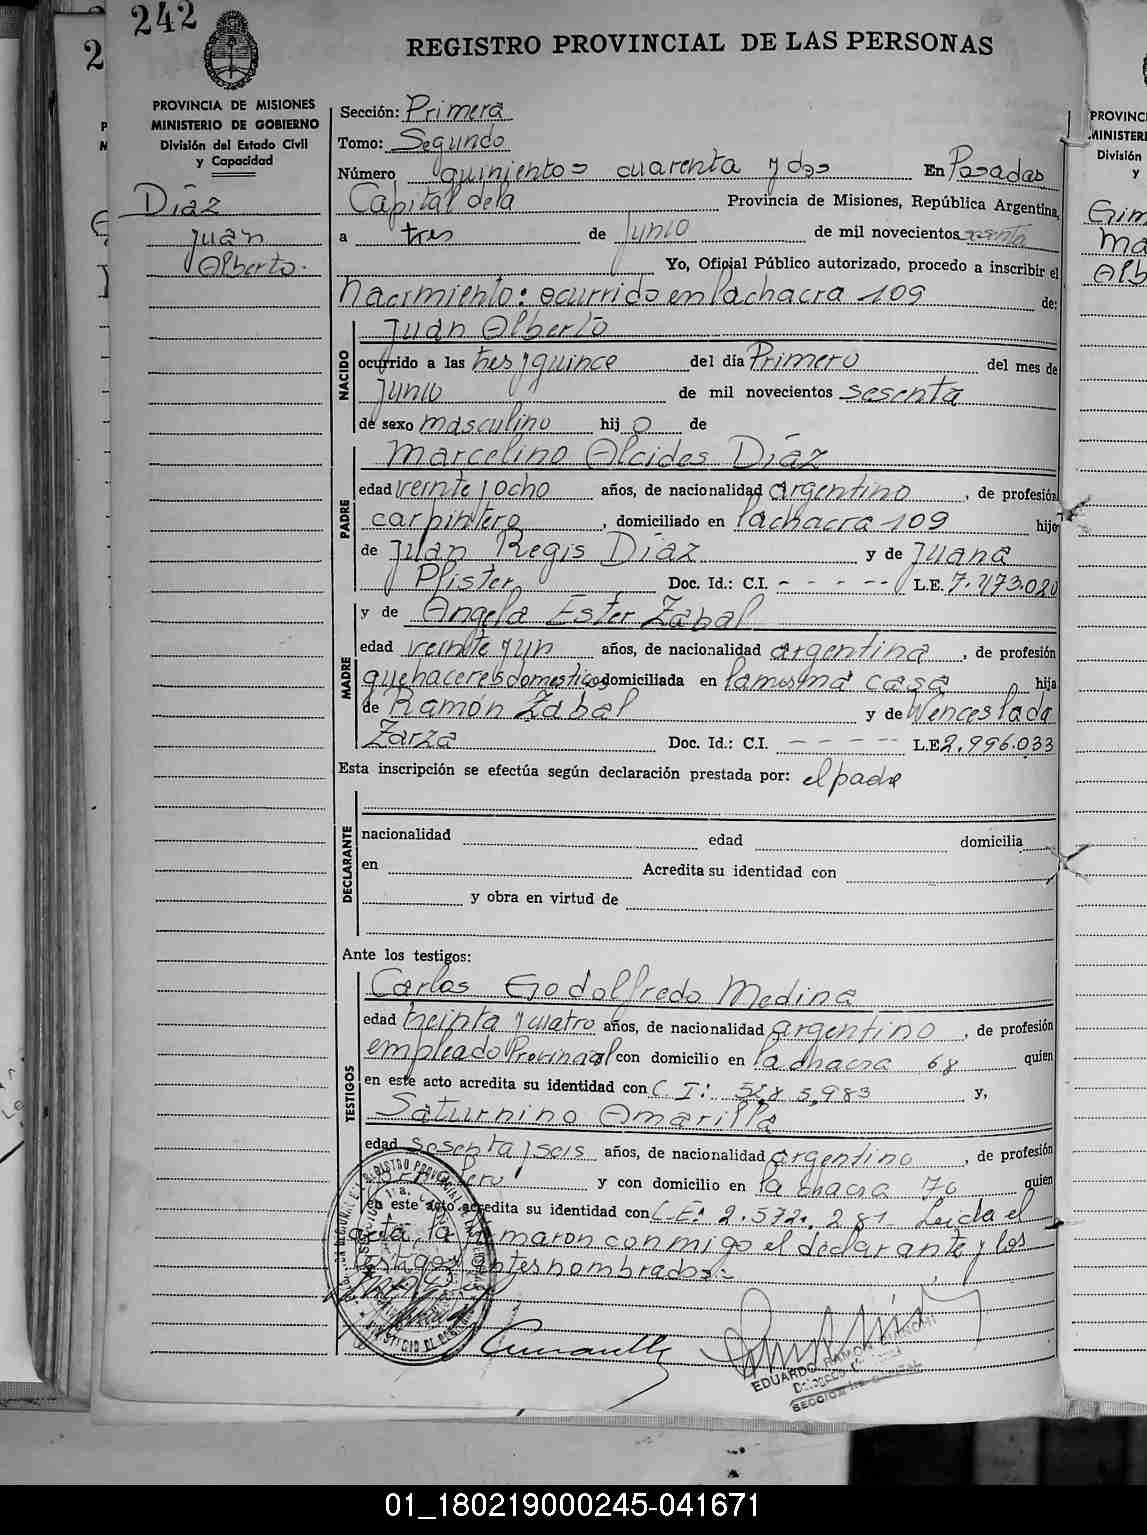 242
REGISTRO PROVINCIAL DE LAS PERSONAS
PROVINCIA DE MISIONES
MINISTERIO DE GOBIERNO
División del Estado Civil
y Capacidad
Díaz
Juan
Alberto.
Sección: Primera
Tomo: Segundo
Número quinientos cuarenta y dos En Posadas
Capital de la Provincia de Misiones, República Argentina,
a tres de junio de mil novecientos sesenta
Yo, Oficial Público autorizado, procedo a inscribir el
nacimiento: ocurrido en la chacra 109 de:
NACIDO
Juan Alberto
ocurrido a las tres y quince del día Primero del mes de
junio de mil novecientos sesenta
de sexo masculino hij o de
PADRE
Marcelino Alcides Díaz
edad veinte y ocho años, de nacionalidad argentino, de profesión
carpintero, domiciliado en la chacra 109 hijo
de Juan Regis Díaz y de Juana
Pfister Doc. Id.: C.I. - - - - - L.E. 7.473.020
MADRE
y de Angela Ester Zabal
edad veinte y un años, de nacionalidad argentina, de profesión
quehaceres domesticos domiciliada en la misma casa hija
de Ramón Zabal y de Wenceslada
Zarza Doc. Id.: C.I. - - - - - L.E. 2.996.033
Esta inscripción se efectúa según declaración prestada por: el padre
DECLARANTE
nacionalidad edad domicilia
en Acredita su identidad con
y obra en virtud de
Ante los testigos:
TESTIGOS
Carlos Godolfredo Medina
edad treinta y cuatro años, de nacionalidad argentino, de profesión
empleado Provincial con domicilio en la chacra 68 quien
en este acto acredita su identidad con C. I: y,
Saturnino Amarilla
edad sesenta y seis años, de nacionalidad argentino, de profesión
y con domicilio en la chacra 70 quien
en este acto acredita su identidad con L.E: 2.572.281. Leida el
acta la firmaron conmigo el declarante y los
testigos antes nombrados.-
EDUARDO RAMON
01_180219000245-041671